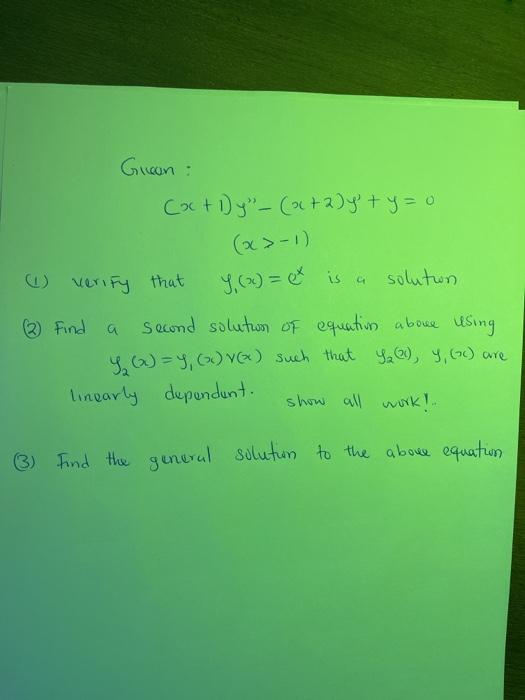 Given :
(x+1)y"- (x+2)y' + y = 0
(x>-1)
(1) verify that y₁(x) = eˣ is a solution
(2) Find a second solution of equation above using
y₂(x) = y₁(x)v(x) such that y₂(x), y₁(x) are
linearly dependent. show all work!..
(3) Find the general solution to the above equation